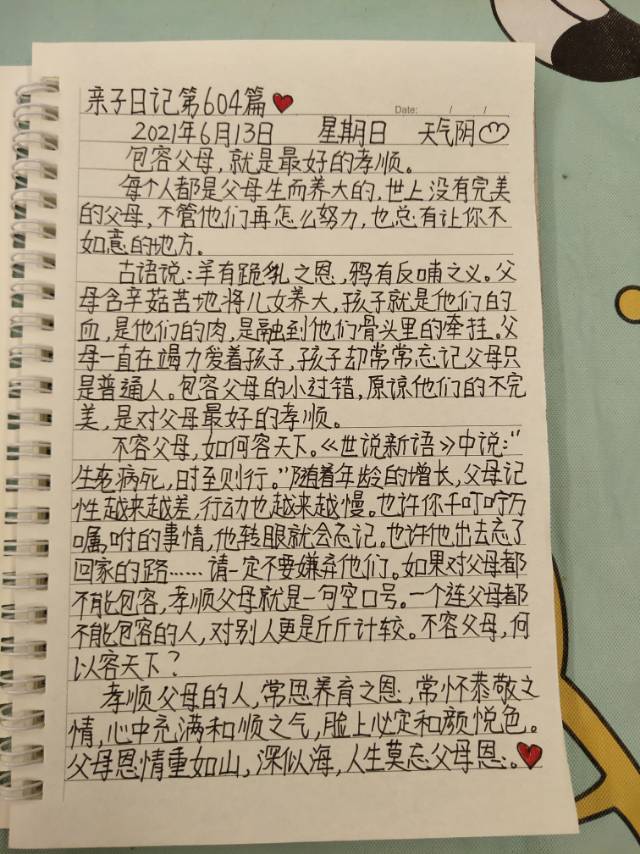 亲子日记第604篇
Date: / /
2021年6月13日 星期日 天气阴
包容父母,就是最好的孝顺。
每个人都是父母生而养大的,世上没有完美
的父母,不管他们再怎么努力,也总有让你不
如意的地方。
古语说:羊有跪乳之恩,鸦有反哺之义。父
母含辛菇苦地将儿女养大,孩子就是他们的
血,是他们的肉,是融到他们骨头里的牵挂。父
母一直在竭力爱着孩子,孩子却常常忘记父母只
是普通人。包容父母的小过错,原谅他们的不完
美,是对父母最好的孝顺。
不容父母,如何容天下。《世说新语》中说:“
生老病死,时至则行。”随着年龄的增长,父母记
性越来越差,行动也越来越慢。也许你千叮咛万
嘱咐的事情,他转眼就会忘记。也许他出去忘了
回家的路……请一定不要嫌弃他们。如果对父母都
不能包容,孝顺父母就是一句空口号。一个连父母都
不能包容的人,对别人更是斤斤计较。不容父母,何
以容天下?
孝顺父母的人,常思养育之恩,常怀恭敬之
情,心中充满和顺之气,脸上必定和颜悦色。
父母恩情重如山,深似海,人生莫忘父母恩。